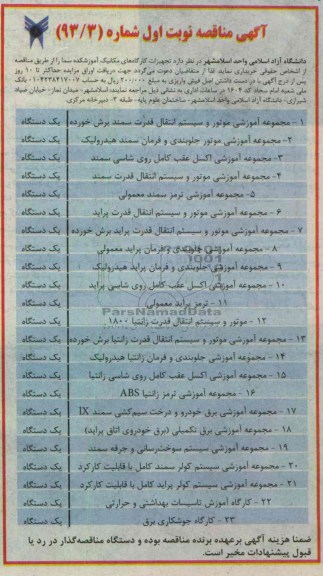 آگهی مناقصه نوبت اول شماره (۹۳/۳)
دانشگاه آزاد اسلامی واحد اسلامشهر در نظر دارد تجهیزات کارگاه‌های مکانیک آموزشکده سما را از طریق مناقصه
از اشخاص حقوقی خریداری نماید لذا از متقاضیان دعوت می‌گردد جهت دریافت اوراق مزایده حداکثر تا ۱۰ روز
پس از درج آگهی با در دست داشتن اصل فیش واریزی به مبلغ ۲۰۰/۰۰۰ ریال به حساب ۰۱۰۴۲۳۸۴۱۷۰۰۷ بانک
ملی شعبه امام سجاد کد ۱۶۰۴ در ساعات اداری به نشانی ذیل مراجعه نمایند: اسلامشهر- میدان نماز- خیابان صیاد
شیرازی- دانشگاه آزاد اسلامی واحد اسلامشهر- ساختمان علوم پایه- طبقه ۳- دبیرخانه مرکزی.
۱ - مجموعه آموزشی موتور و سیستم انتقال قدرت سمند برش خورده یک دستگاه
۲- مجموعه آموزشی موتور جلوبندی و فرمان سمند هیدرولیک یک دستگاه
۳- مجموعه آموزشی اکسل عقب کامل روی شاسی سمند یک دستگاه
۴- مجموعه آموزشی موتور و سیستم انتقال قدرت سمند یک دستگاه
۵- مجموعه آموزشی ترمز سمند معمولی یک دستگاه
۶ - مجموعه آموزشی موتور و سیستم انتقال قدرت پراید یک دستگاه
۷ - مجموعه آموزشی موتور و سیستم انتقال قدرت پراید برش خورده یک دستگاه
۸ - مجموعه آموزشی جلوبندی و فرمان پراید معمولی یک دستگاه
۹ - مجموعه آموزشی جلوبندی و فرمان پراید هیدرولیک یک دستگاه
۱۰ - مجموعه آموزشی اکسل عقب کامل روی شاسی پراید یک دستگاه
۱۱ - ترمز پراید معمولی یک دستگاه
ParsNamadData
۱۲ - موتور و سیستم انتقال قدرت زانتیا ۱۸۰۰ یک دستگاه
۱۳ - مجموعه آموزشی موتور و سیستم انتقال قدرت زانتیا برش خورده یک دستگاه
۱۴ - مجموعه آموزشی جلوبندی و فرمان زانتیا هیدرولیک یک دستگاه
۱۵ - مجموعه آموزشی اکسل عقب کامل روی شاسی زانتیا یک دستگاه
۱۶ - مجموعه آموزشی ترمز زانتیا ABS یک دستگاه
۱۷ - مجموعه آموزشی برق خودرو و درخت سیم‌کشی سمند IX یک دستگاه
۱۸ - مجموعه آموزشی برق تکمیلی (برق خودروی اتاق پراید) یک دستگاه
۱۹ - مجموعه آموزشی سیستم سوخت‌رسانی و جرقه سمند یک دستگاه
۲۰ - مجموعه آموزشی سیستم کولر سمند کامل با قابلیت کارکرد یک دستگاه
۲۱ - مجموعه آموزشی سیستم کولر پراید کامل با قابلیت کارکرد یک دستگاه
۲۲ - کارگاه آموزش تاسیسات بهداشتی و حرارتی یک دستگاه
۲۳ - کارگاه جوشکاری برق یک دستگاه
ضمنا هزینه آگهی برعهده برنده مناقصه بوده و دستگاه مناقصه‌گذار در رد یا
قبول پیشنهادات مخیر است.